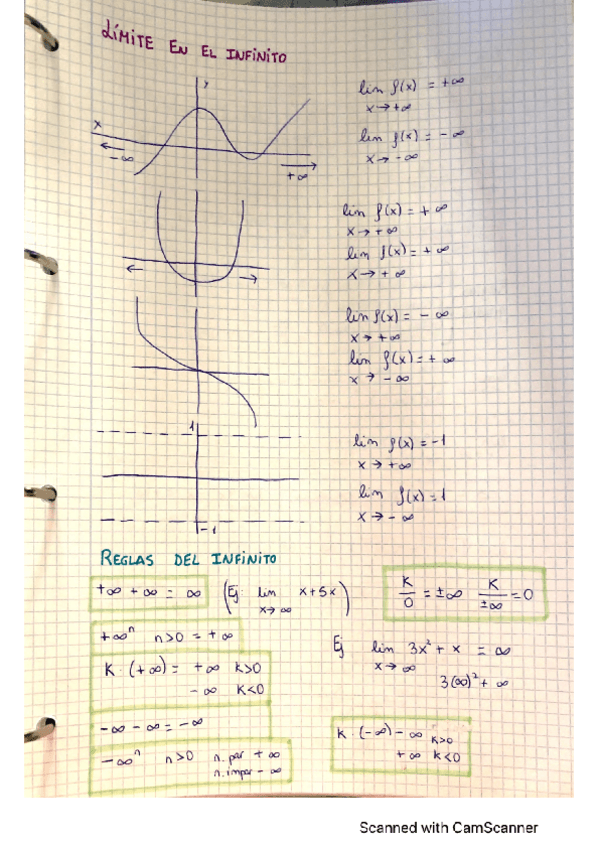 LÍMITE EN EL INFINITO
y
x
-∞
+∞
lim f(x) = +∞
x→+∞
lim f(x) = -∞
x→-∞
lim f(x) = +∞
x→+∞
lim f(x) = +∞
x→+∞
lim f(x) = -∞
x→+∞
lim f(x) = +∞
x→-∞
1
-1
lim f(x) = -1
x→+∞
lim f(x) = 1
x→-∞
REGLAS DEL INFINITO
+∞ +∞ = ∞ (Ej lim x+5x)
x→∞
K/0 = ±∞ K/±∞ = 0
+∞ⁿ n>0 = +∞
Ej lim 3x² + x = ∞
x→∞
3(∞)² + ∞
K · (+∞) = +∞ K>0
-∞ K<0
-∞ -∞ = -∞
-∞ⁿ n>0 n.par +∞
n.impar -∞
K · (-∞) - ∞ K>0
+∞ K<0
Scanned with CamScanner